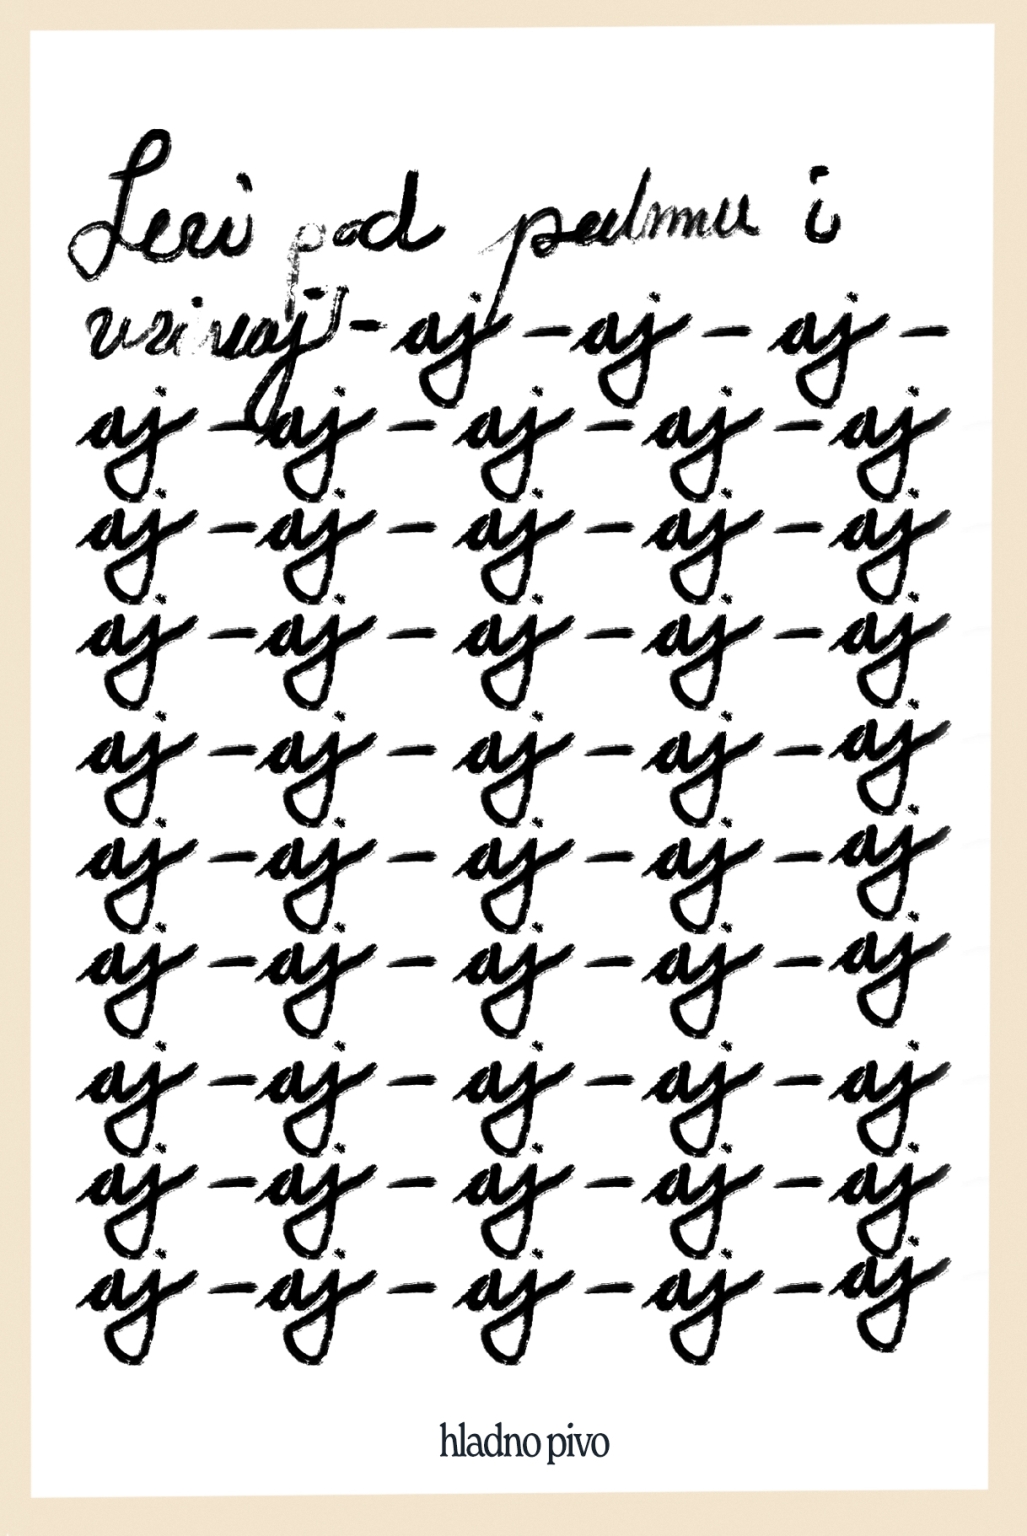 Lezi pod palmu i
uzivaj - aj - aj - aj -
aj - aj - aj - aj - aj
aj - aj - aj - aj - aj
aj - aj - aj - aj - aj
aj - aj - aj - aj - aj
aj - aj - aj - aj - aj
aj - aj - aj - aj - aj
aj - aj - aj - aj - aj
aj - aj - aj - aj - aj
aj - aj - aj - aj - aj
hladno pivo